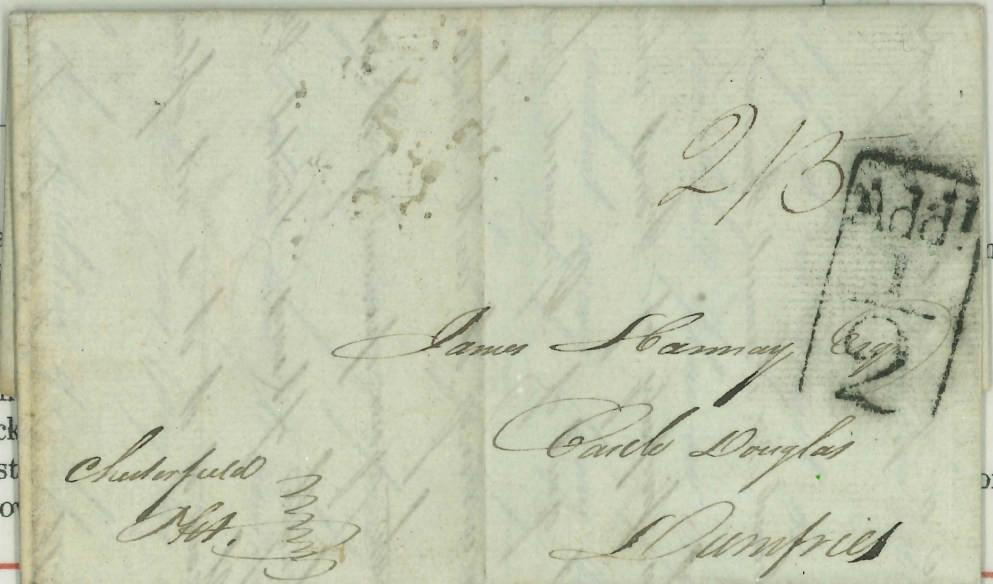 2/3
Addl
1
2
James Hannay Esqr
Castle Douglas
Dumfries
Chesterfield